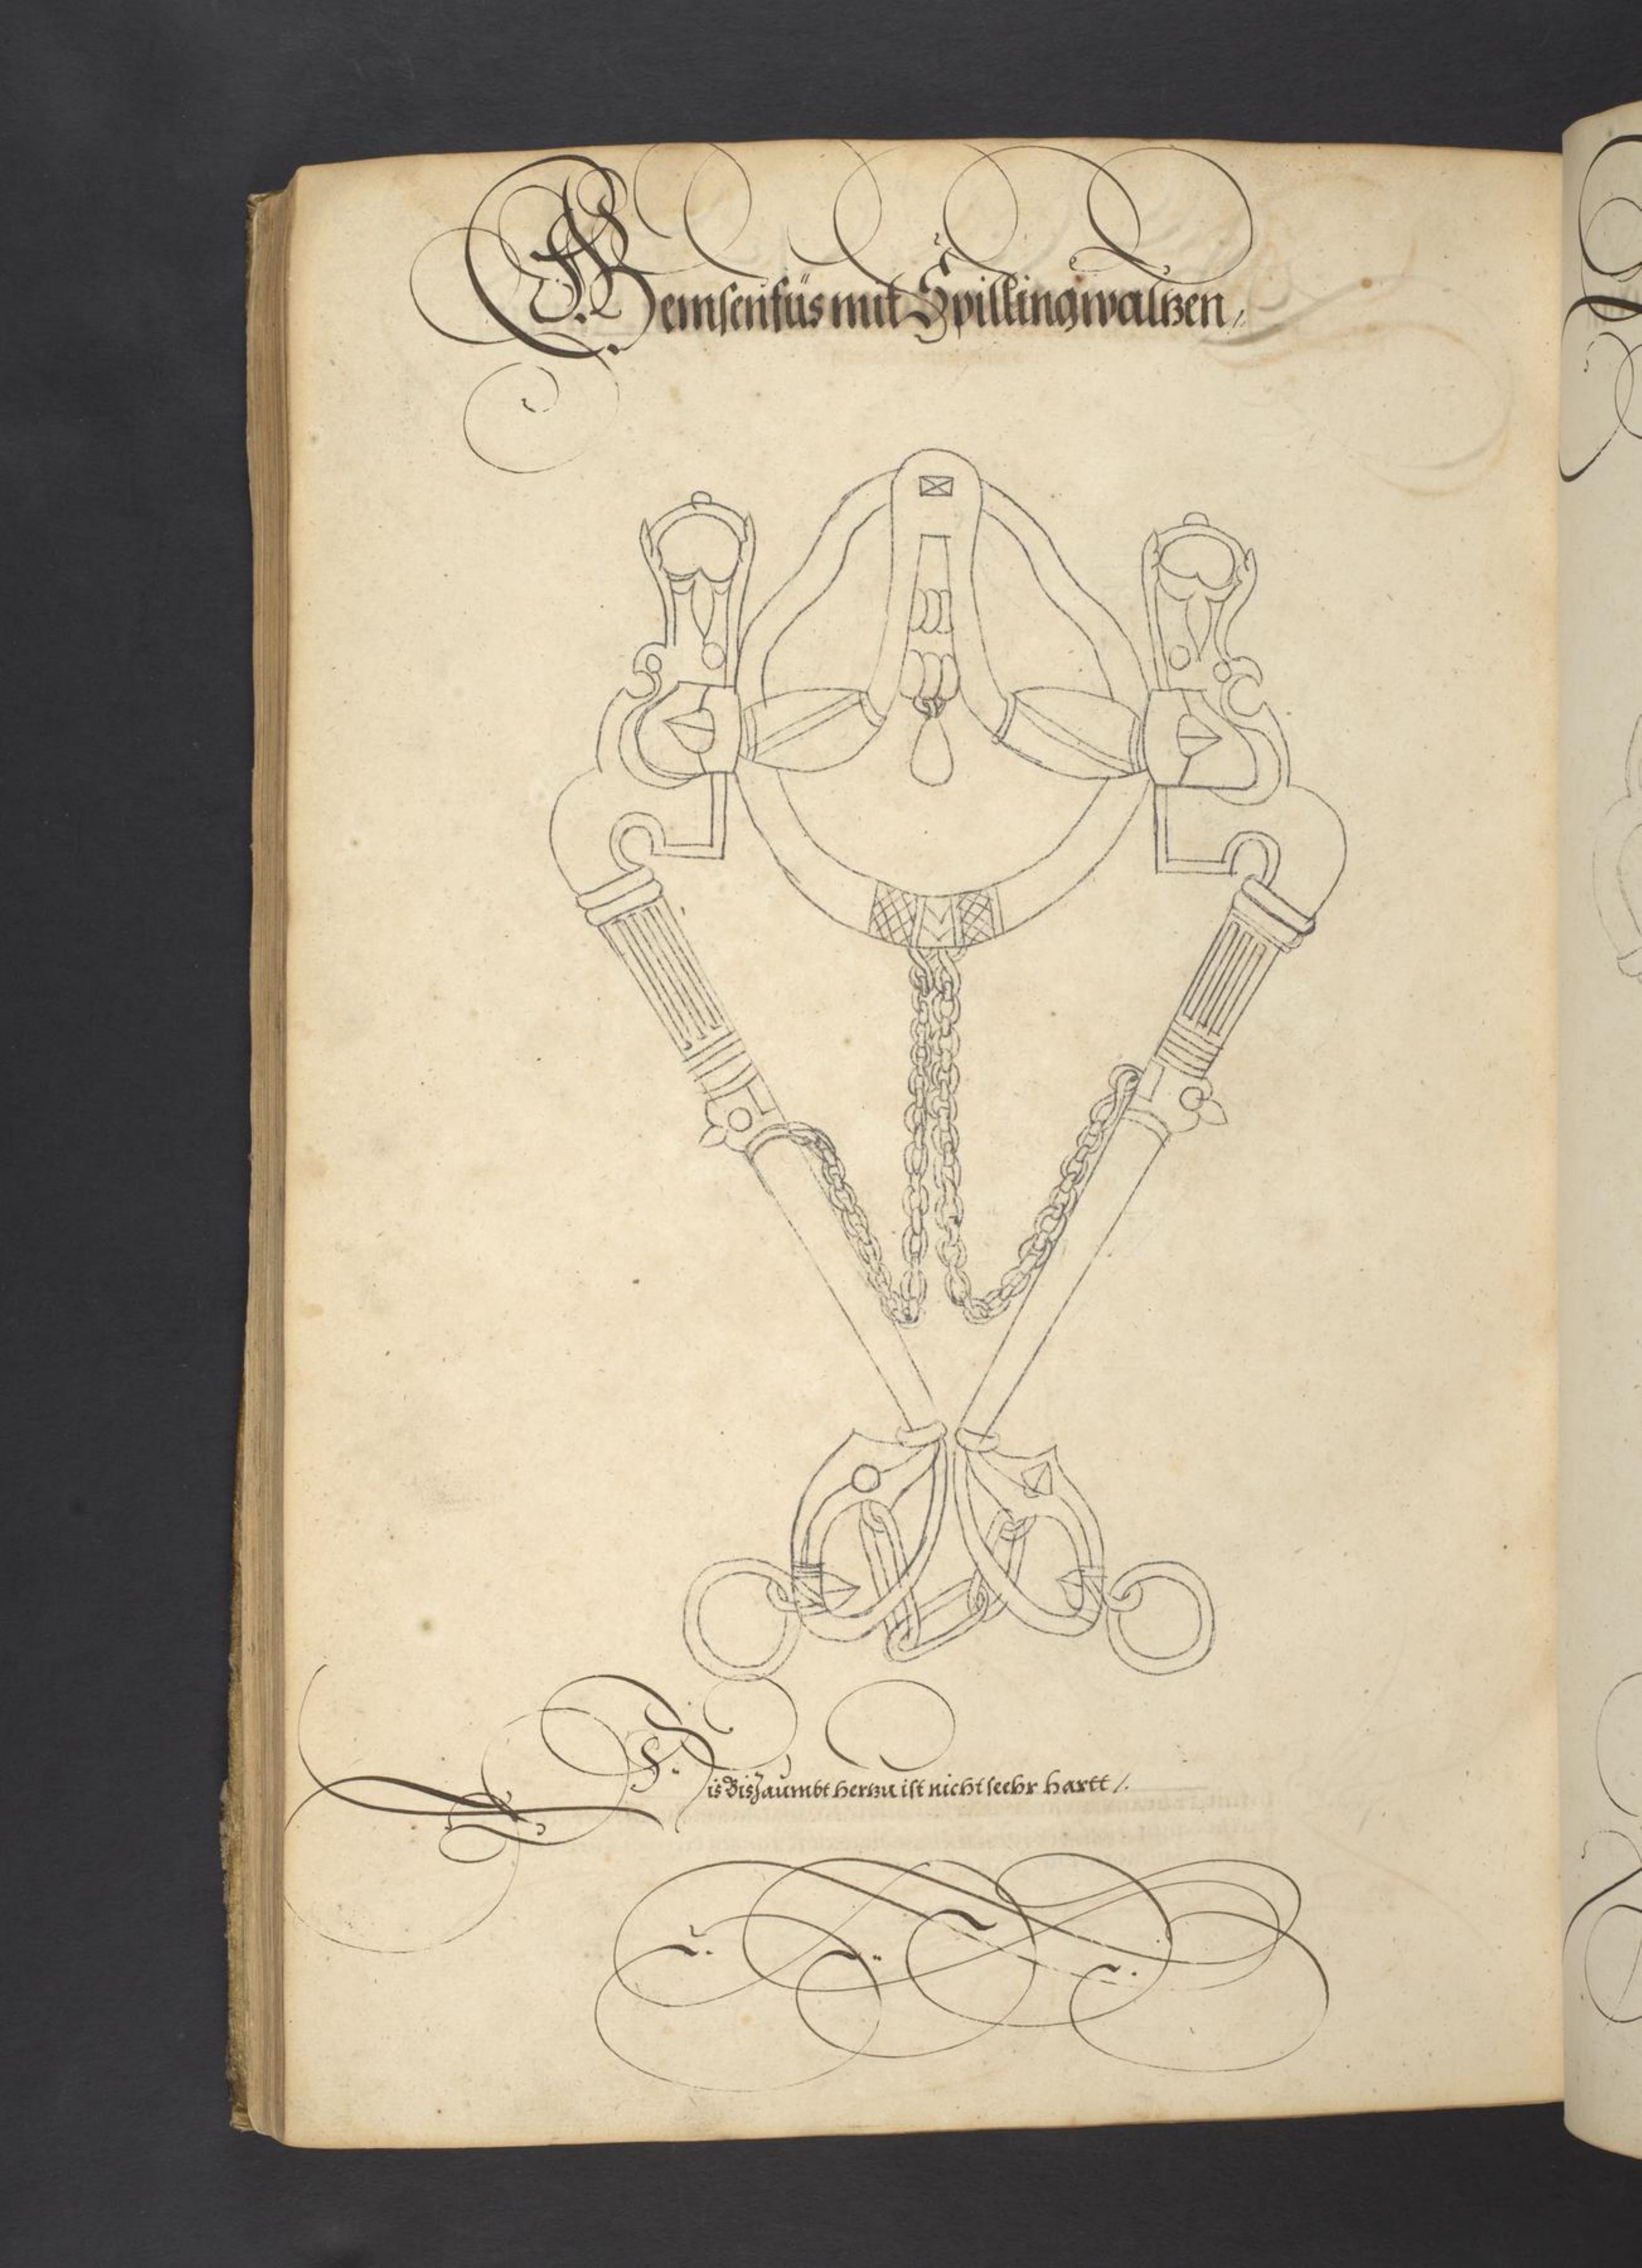 Gemsenfüs mit Spillingwaltzen,
Dis Biszaumbt hertzu ist nicht seehr hartt /.